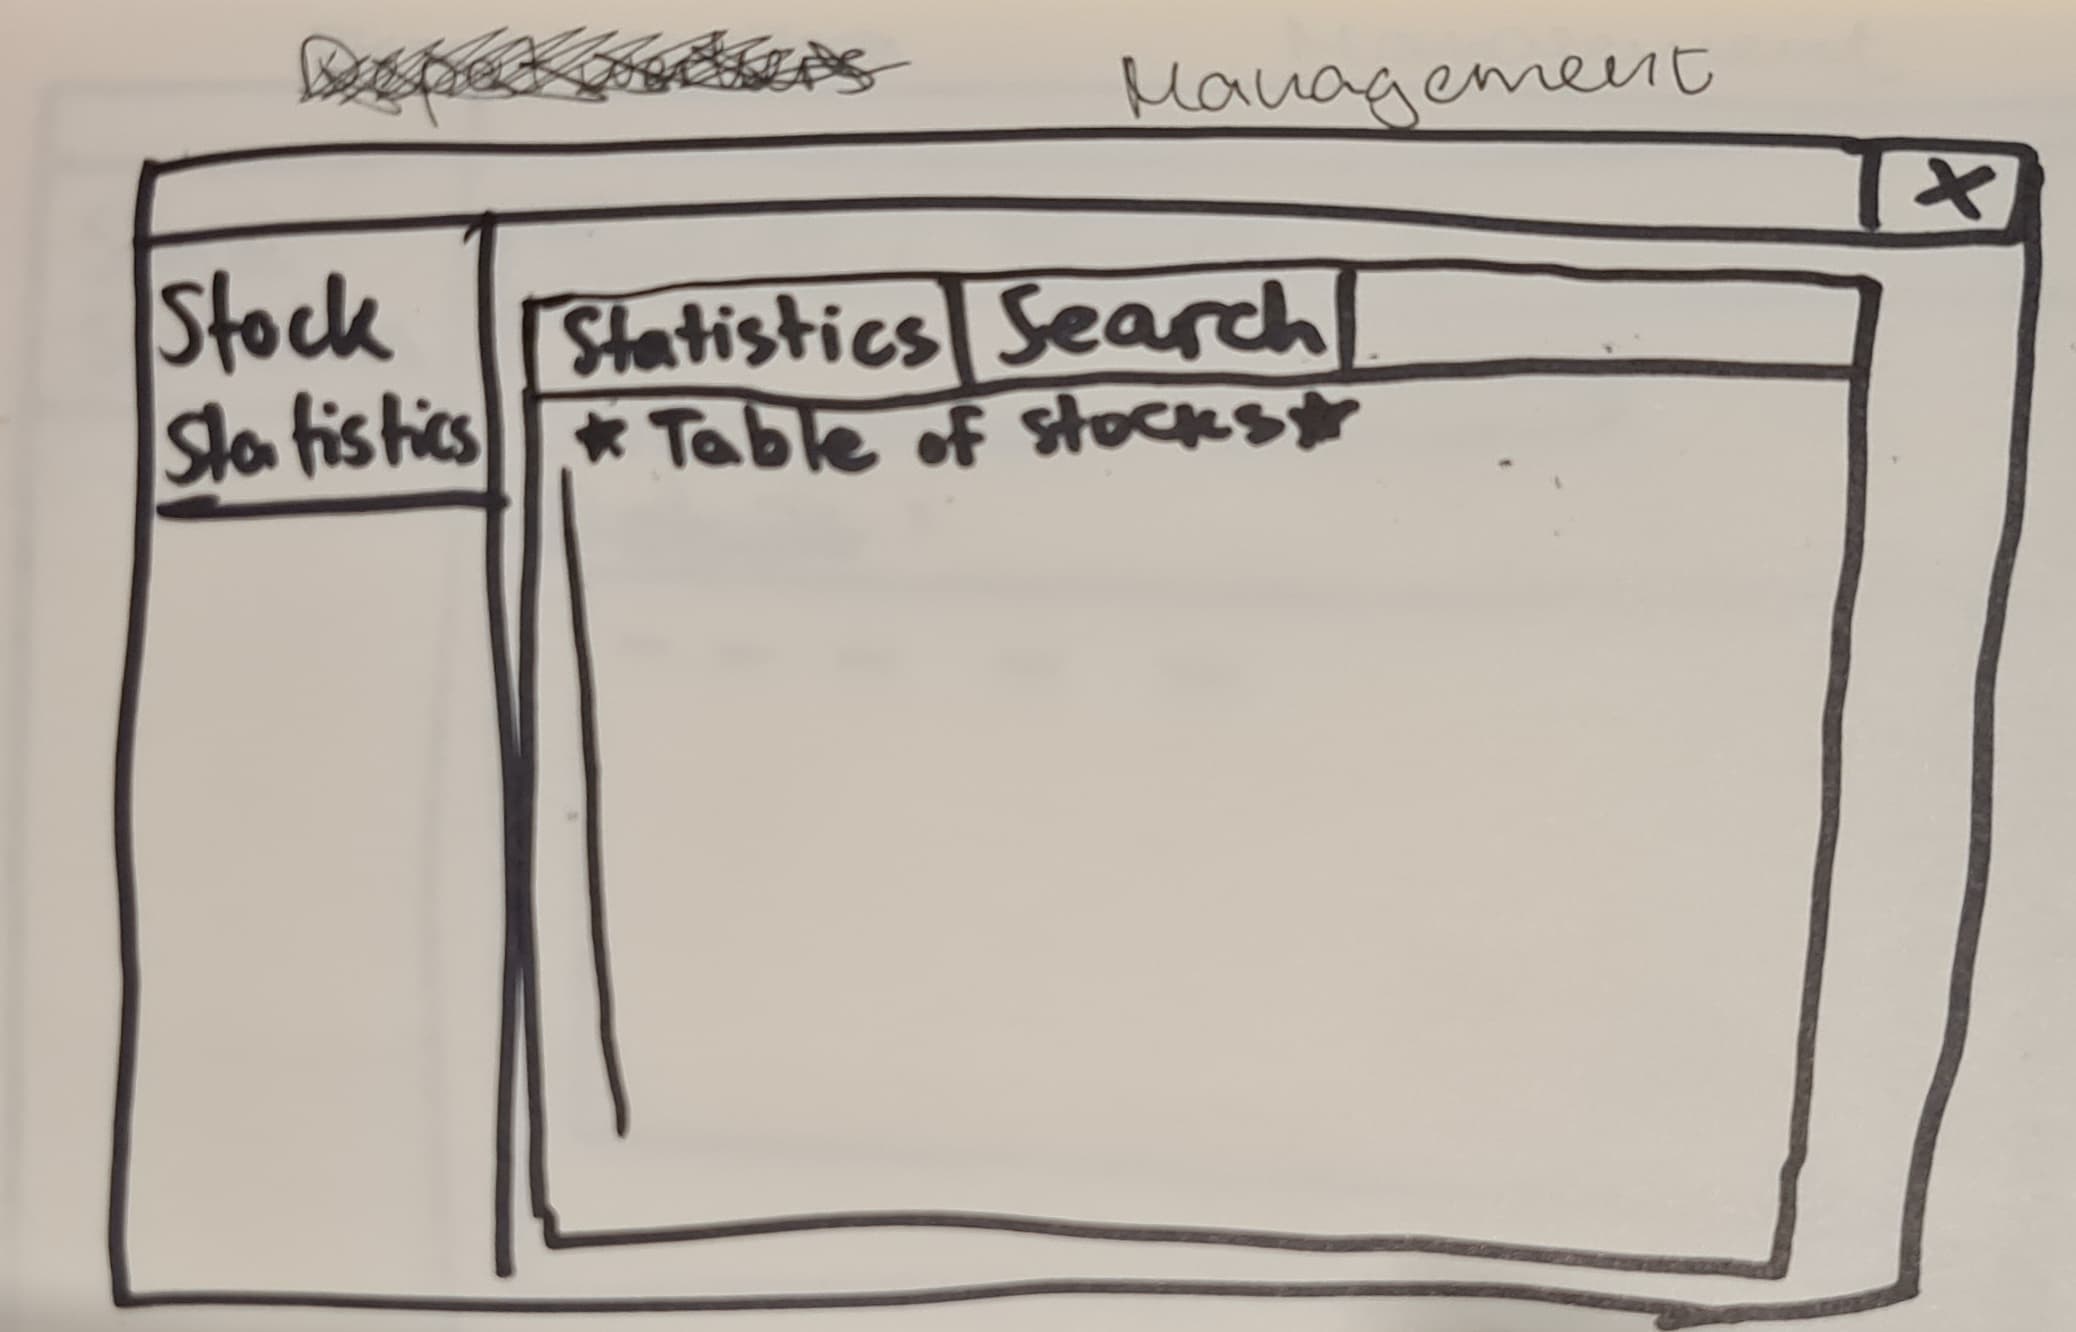 Management
X
Stock
Statistics
Statistics Search
*Table of stocks*